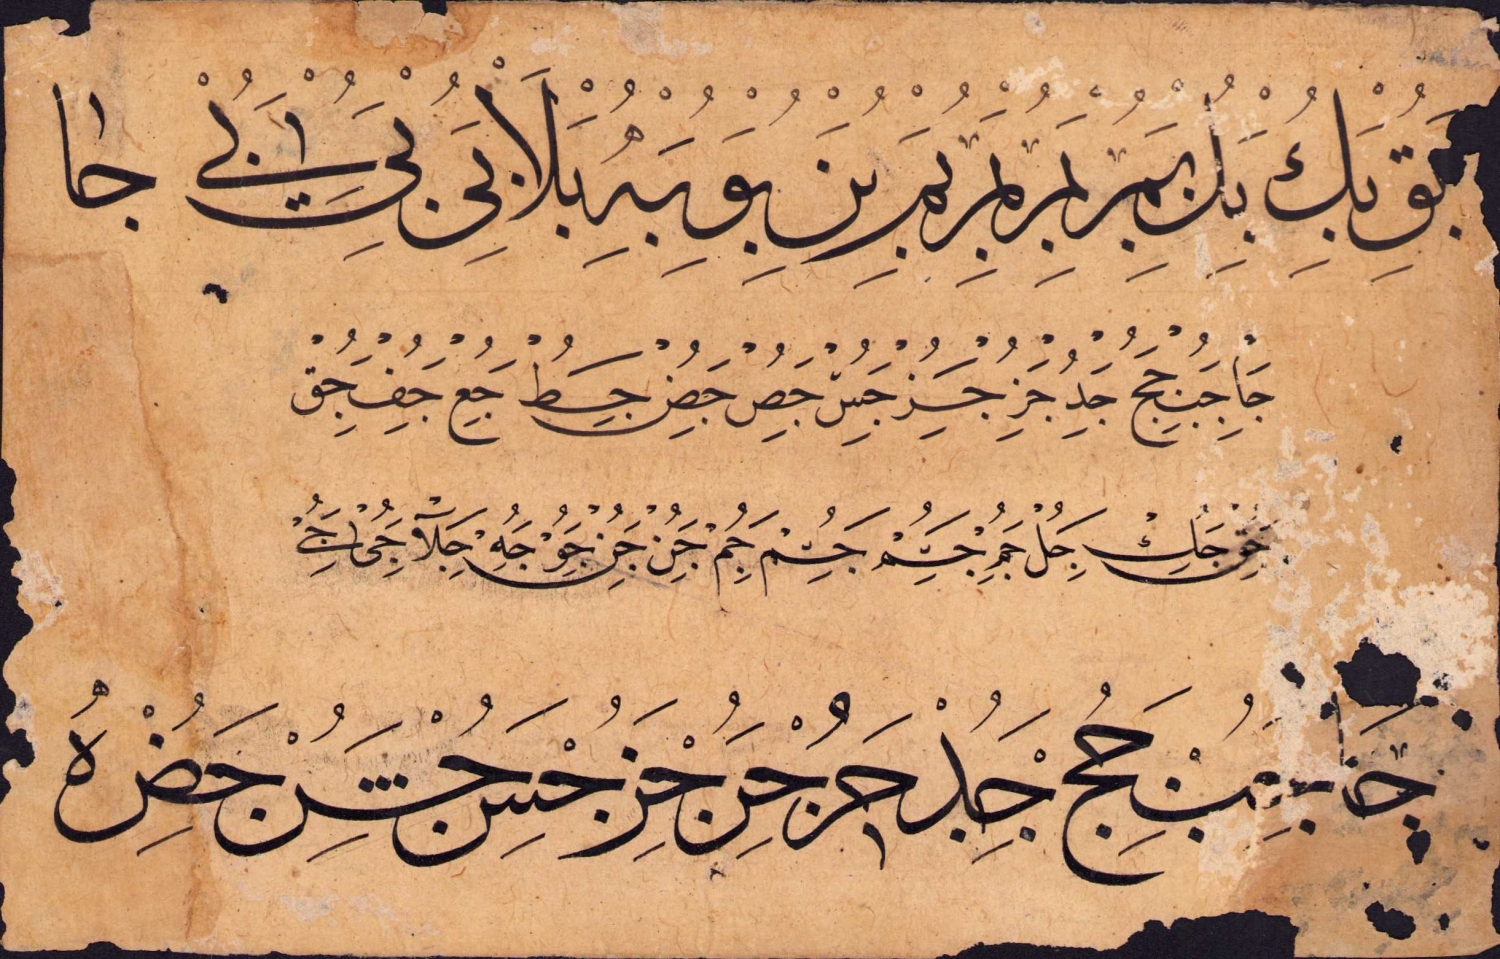 بق بك بل بم بن بو به بلا بى بى جا
جا جب جج جد جر جز جس جص جض جط جع جف جق
جق جك جل جم جم جم جم جن جن جو جه جلا جى جى
جا جب جج جد جر جن جز جس جش جض ه